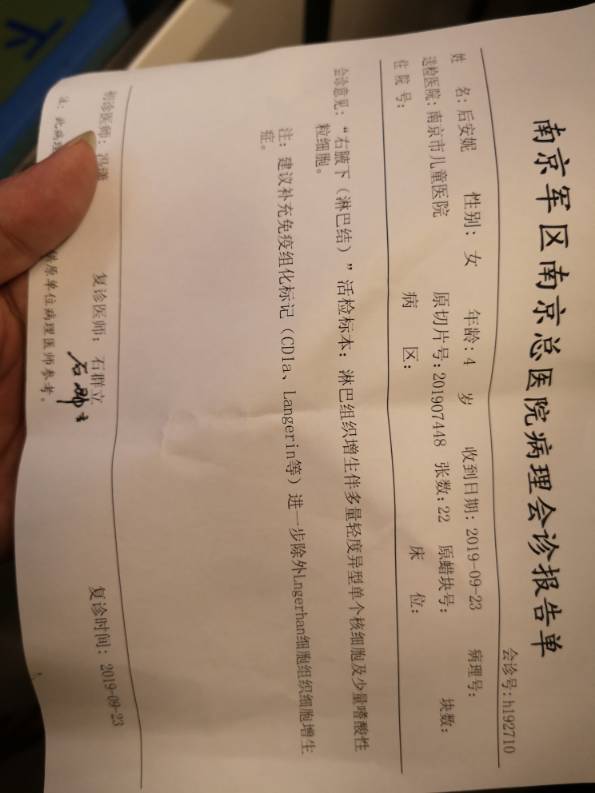 南京军区南京总医院病理会诊报告单
会诊号:h192710
姓 名:后安妮 性别:女 年龄:4 岁 收到日期:2019-09-23 病理号:
送检医院:南京市儿童医院 原切片号:201907448 张数:22 原蜡块号: 块数:
住院号: 病 区: 床 位:
会诊意见:“右腋下(淋巴结)”活检标本:淋巴组织增生伴多量轻度异型单个核细胞及少量嗜酸性
粒细胞。
注:建议补充免疫组化标记(CD1a、Langerin等)进一步除外Lngerhan细胞组织细胞增生
症。
初诊医师: 复诊医师:石群立 复诊时间:2019-09-23
石群立
注:此病理 供原单位病理医师参考。